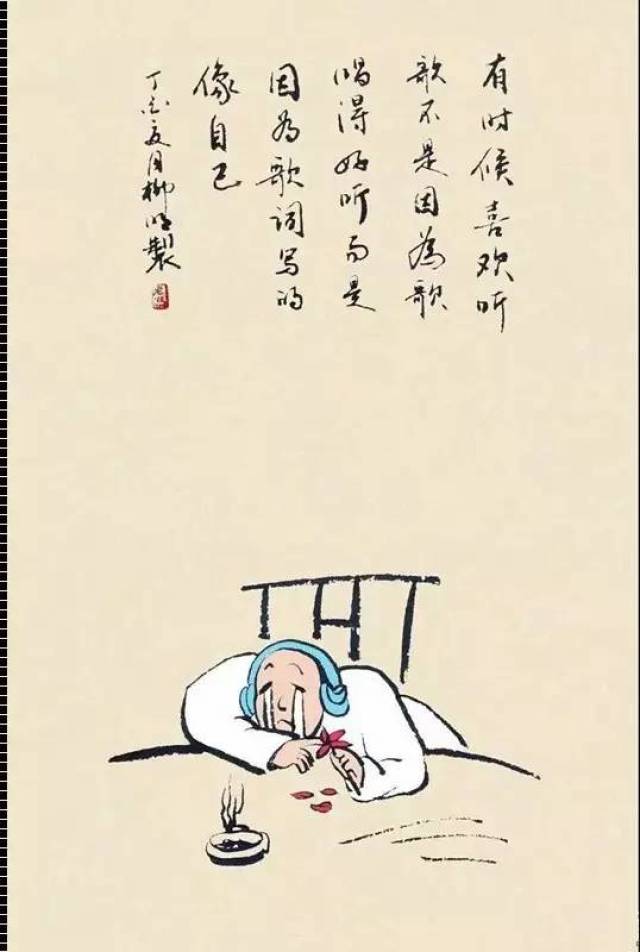 有时候喜欢听
歌不是因為歌
唱得好听而是
因為歌词写的
像自己
丁酉夏月柳明製